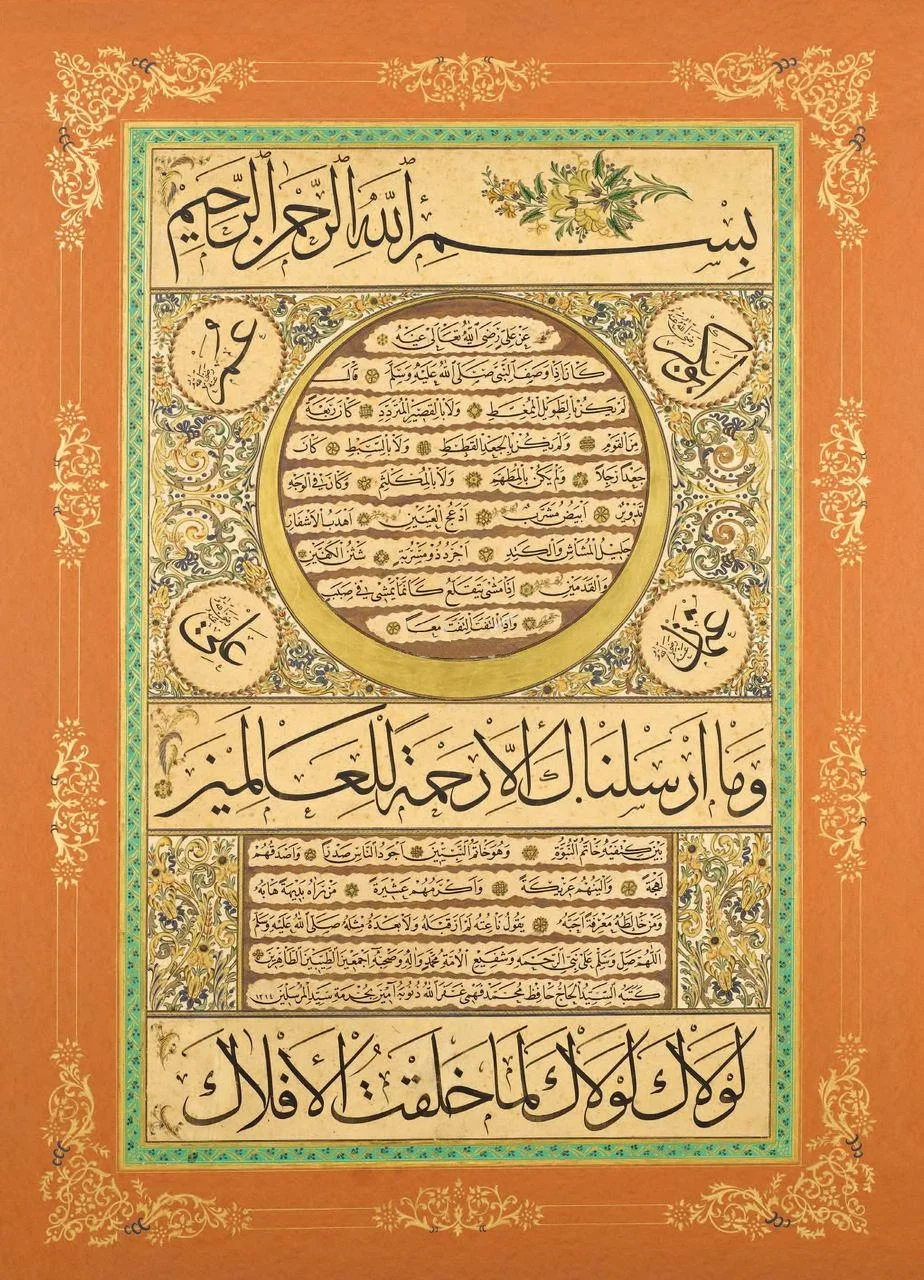 بِسْمِ اللهِ الرَّحْمٰنِ الرَّحِيْمِ
ابوبكر
رضى الله عنه
عمر
رضى الله عنه
عَنْ عَلِىٍّ رَضِىَ اللهُ تَعَالٰى عَنْهُ
كَانَ اِذَا وَصَفَ النَّبِىَّ صَلَّى اللهُ عَلَيْهِ وَسَلَّمَ قَالَ
لَمْ يَكُنْ بِالطَّوِيلِ الْمُمَّغِطِ وَلَا بِالْقَصِيْرِ الْمُتَرَدِّدِ كَانَ رَبْعَةً
مِنَ الْقَوْمِ وَلَمْ يَكُنْ بِالْجَعْدِ الْقَطَطِ وَلَا بِالسَّبِطِ كَانَ
جَعْدًا رَجِلًا وَلَمْ يَكُنْ بِالْمُطَهَّمِ وَلَا بِالْمُكَلْثَمِ وَكَانَ فِى الْوَجْهِ
تَدْوِيْرٌ اَبْيَضُ مُشْرَبٌ اَدْعَجُ الْعَيْنَيْنِ اَهْدَبُ الْاَشْفَارِ
جَلِيْلُ الْمُشَاشِ وَالْكَتَدِ اَجْرَدُ ذُو مَسْرُبَةٍ شَثْنُ الْكَفَّيْنِ
وَالْقَدَمَيْنِ اِذَا مَشٰى تَقَلَّعَ كَاَنَّمَا يَمْشِى فِى صَبَبٍ
وَاِذَا الْتَفَتَ الْتَفَتَ مَعًا
عثمان
رضى الله عنه
على
رضى الله عنه
وَمَا اَرْسَلْنَاكَ اِلَّا رَحْمَةً لِلْعَالَمِيْنَ
بَيْنَ كَتِفَيْهِ خَاتَمُ النُّبُوَّةِ وَهُوَ خَاتَمُ النَّبِيِّيْنَ اَجْوَدُ النَّاسِ صَدْرًا وَاَصْدَقُهُمْ
لَهْجَةً وَاَلْيَنُهُمْ عَرِيْكَةً وَاَكْرَمُهُمْ عَشِيْرَةً مَنْ رَاٰهُ بَدِيْهَةً هَابَهُ
وَمَنْ خَالَطَهُ مَعْرِفَةً اَحَبَّهُ يَقُولُ نَاعِتُهُ لَمْ اَرَ قَبْلَهُ وَلَا بَعْدَهُ مِثْلَهُ صَلَّى اللهُ عَلَيْهِ وَسَلَّمَ
اَللّٰهُمَّ صَلِّ وَسَلِّمْ عَلٰى نَبِىِّ الرَّحْمَةِ وَشَفِيْعِ الْاُمَّةِ مُحَمَّدٍ وَاٰلِهِ وَصَحْبِهِ اَجْمَعِيْنَ الطَّيِّبِيْنَ الطَّاهِرِيْنَ
كَتَبَهُ السَّيِّدُ الْحَاجُّ حَافِظ مُحَمَّد فَهْمِى غَفَرَ اللهُ ذُنُوبَهُ اٰمِيْنَ بِحُرْمَةِ سَيِّدِ الْمُرْسَلِيْنَ ١٣١٤
لَوْلَاكَ لَوْلَاكَ لَمَا خَلَقْتُ الْاَفْلَاكَ